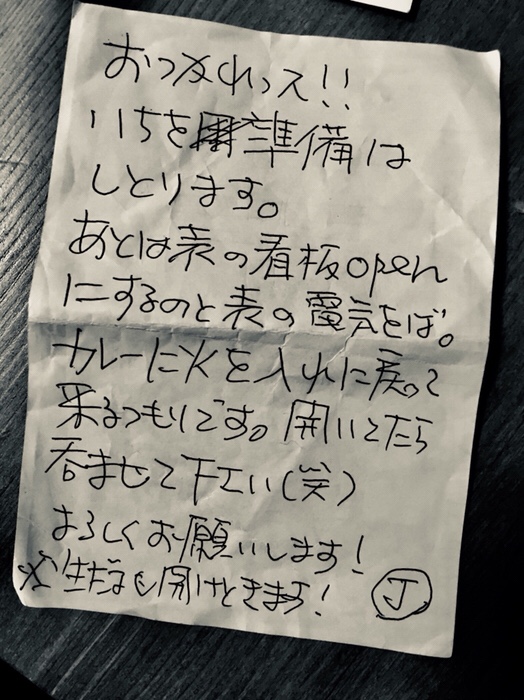 おつかれっス!!
いちを準備は
しとります。
あとは表の看板open
にするのと表の電気をば。
カレーに火を入れに戻って
来るつもりです。開いてたら
呑ませて下工い(笑)
よろしくお願いします!
※生だるも開けときます!
J